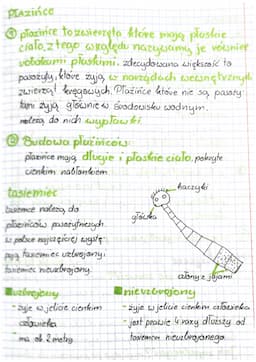 Płazińce
① płazińce to zwierzęta które mają płaskie
ciało, z tego względu nazywamy je również
robakami płaskimi. zdecydowana większość to
pasożyty, które żyją w narządach wewnętrznych
zwierząt kręgowych. Płazińce które nie są pasoży-
tami żyją głównie w środowisku wodnym.
należą do nich wypławki.
② Budowa płazińców
płazińce mają długie i płaskie ciało, pokryte
cienkim nabłonkiem
tasiemiec
haczyki
tasiemce należą do
płazińców pasożytniczych.
główka
w polsce najczęściej wystę-
pują tasiemiec uzbrojony i
tasiemiec nieuzbrojony.
człony z jajami
uzbrojony
nieuzbrojony
- żyje w jelicie cienkim
człowieka
- ma ok 2 metry
- żyje w jelicie cienkim człowieka
- jest prawie 4 razy dłuższy od
tasiemca nieuzbrojonego